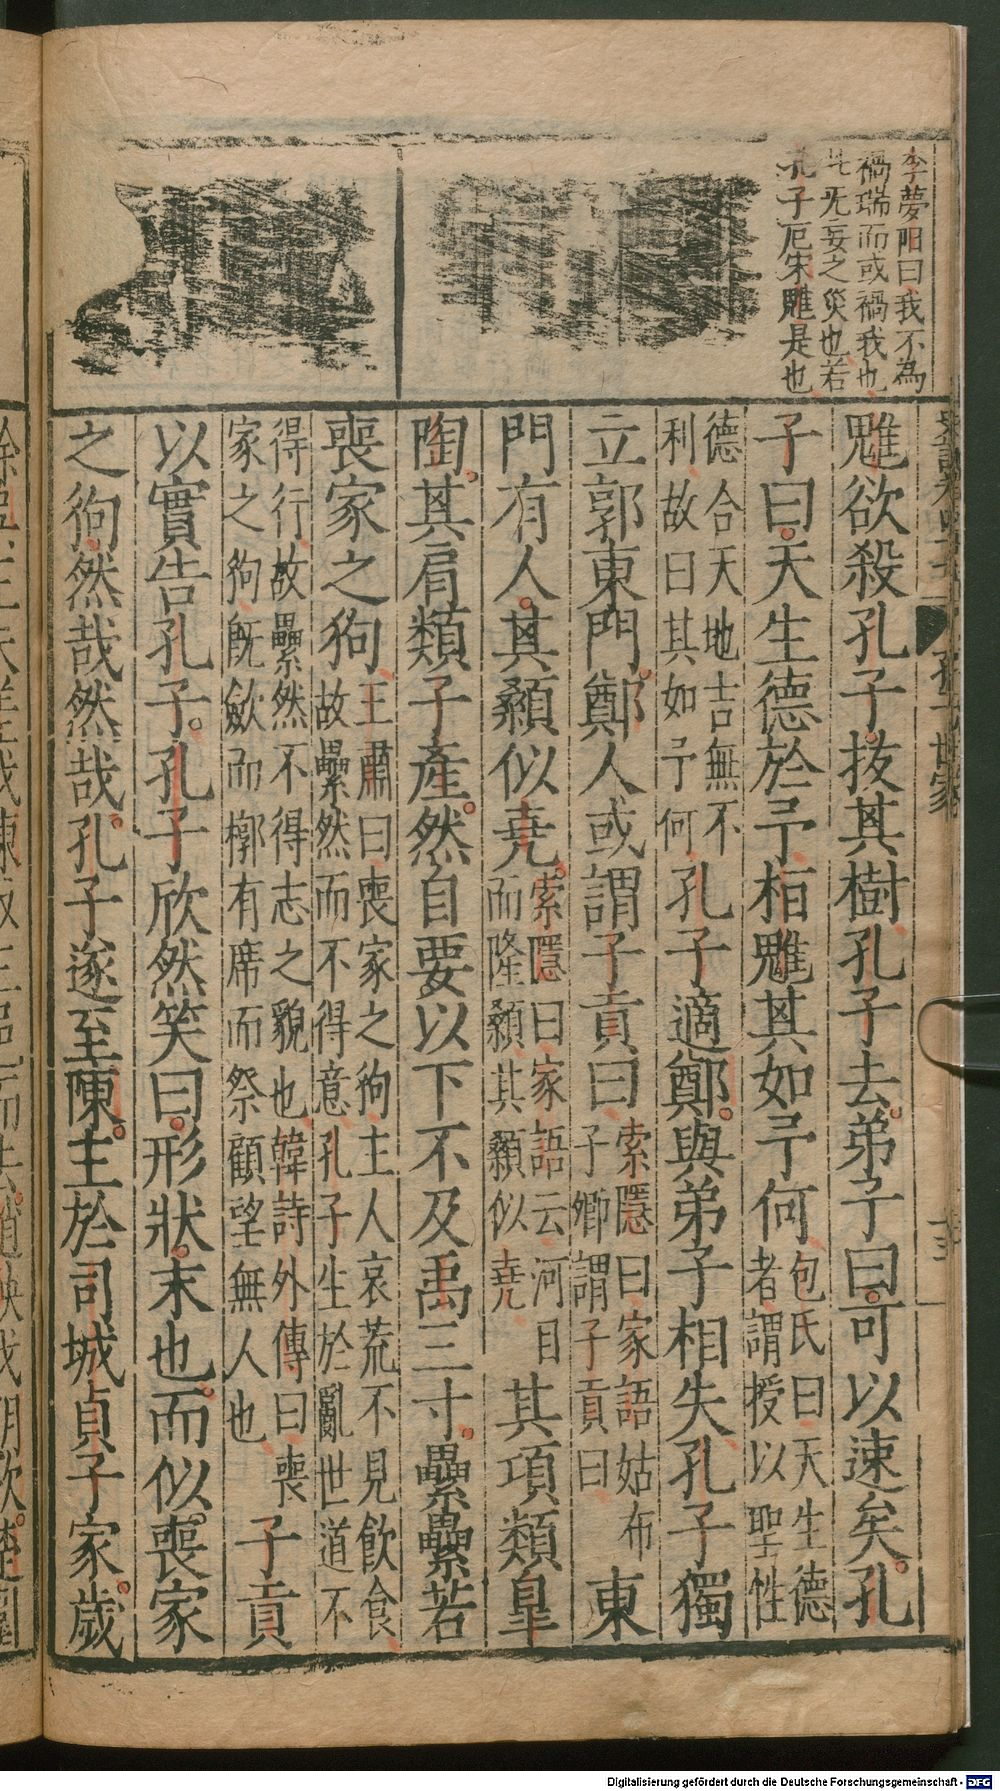 李夢陽曰我不為
禍瑞而或禍我也
此无妄之災也若
孔子厄宋魋是也
孔子世家
魋欲殺孔子拔其樹孔子去弟子曰可以速矣孔
子曰天生德於予桓魋其如予何
包氏曰天生德
者謂授以聖性
德合天地吉無不
利故曰其如予何
孔子適鄭與弟子相失孔子獨
立郭東門鄭人或謂子貢曰
索隱曰家語姑布
子卿謂子貢曰
東
門有人其顙似堯
索隱曰家語云河目
而隆顙其顙似堯
其項類皐
陶其肩類子產然自要以下不及禹三寸纍纍若
喪家之狗
王肅曰喪家之狗主人哀荒不見飲食
故纍然而不得意孔子生於亂世道不
得行故纍然不得志之貌也韓詩外傳曰喪
家之狗旣斂而槨有席而祭顧望無人也
子貢
以實告孔子孔子欣然笑曰形狀末也而似喪家
之狗然哉然哉孔子遂至陳主於司城貞子家歲
Digitalisierung gefördert durch die Deutsche Forschungsgemeinschaft - DFG